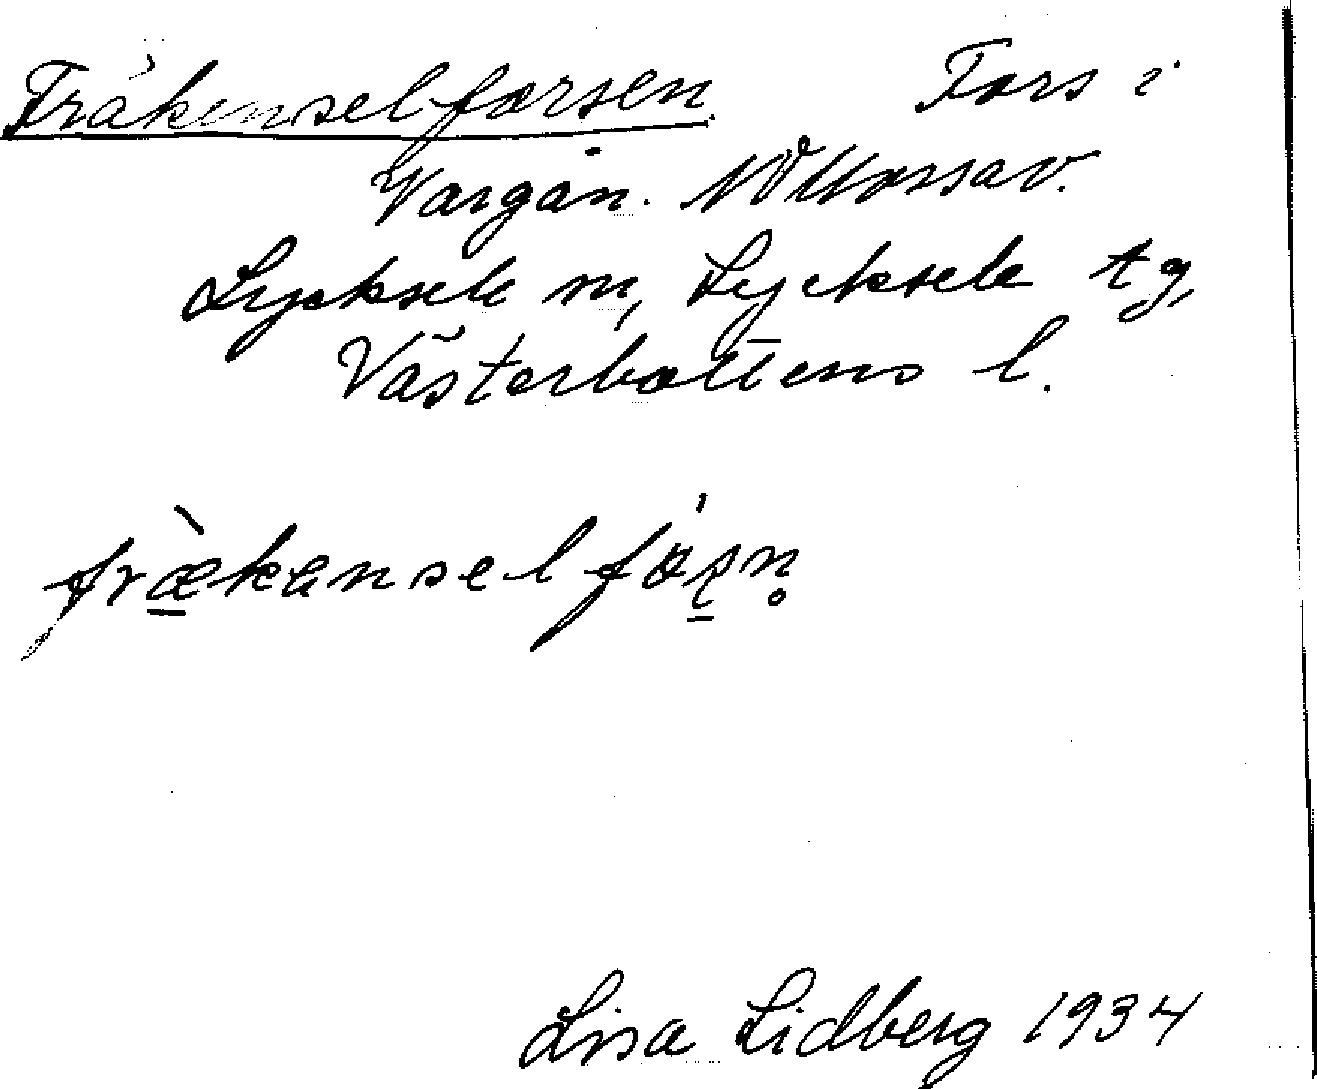 Fräkenselforsen Fors i
Vargån. NV Mossav.
Lycksele sn, Lycksele tg,
Västerbottens l.
fræ̀kansel fós̱n̥
Lisa Lidberg 1934